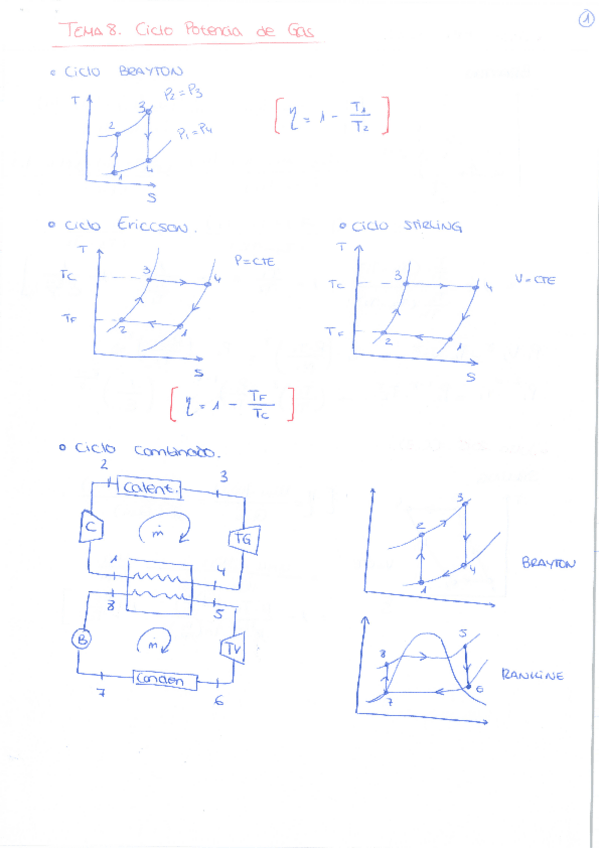 1
TEMA 8. Ciclo Potencia de Gas
Ciclo BRAYTON
T
P2 = P3
3
2
P1 = P4
1
4
S
[η = 1 - T1/T2]
Ciclo Ericcson.
T
P = CTE
TC
3
4
TF
2
1
S
Ciclo STIRLING
T
V = CTE
TC
3
4
TF
2
1
S
[η = 1 - TF/TC]
Ciclo Combinado.
2
Calent.
3
C
ṁ
TG
1
4
8
5
B
ṁ
TV
7
Conden
6
3
2
4
1
BRAYTON
8
5
7
6
RANKINE